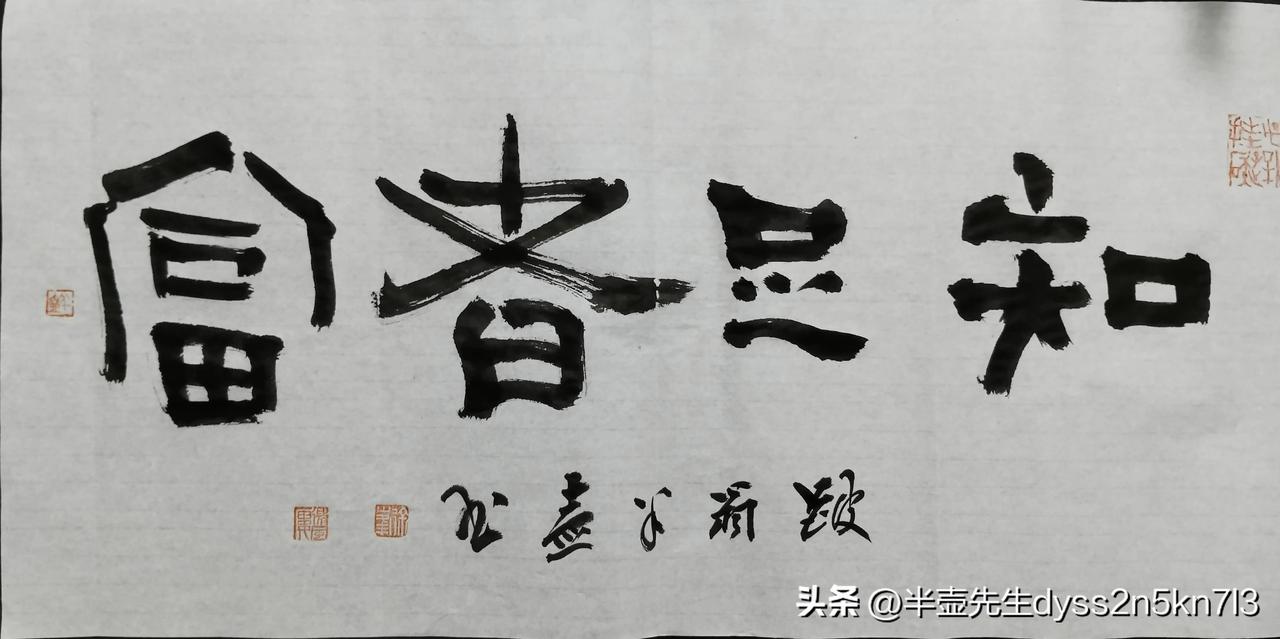 知足者富
半壺书
头条 @半壶先生dyss2n5kn7l3